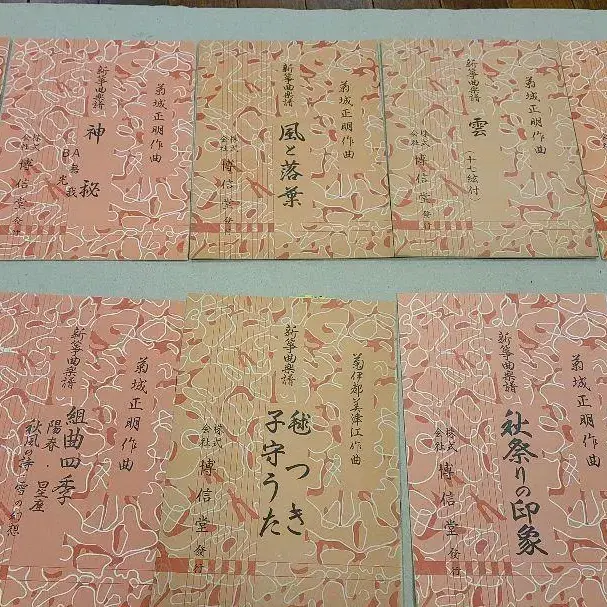 菊城正明作曲
新箏曲楽譜
神秘
BA
株式会社 博信堂 発行
菊城正明作曲
新箏曲楽譜
風と落葉
株式会社 博信堂 発行
菊城正明作曲
新箏曲楽譜
雲
(十七絃付)
株式会社 博信堂 発行
菊城正明作曲
新箏曲楽譜
組曲四季
陽春・星座
秋風の
雪の幻想
菊伊都美津江作曲
新箏曲楽譜
毬つき
子守うた
株式会社 博信堂 発行
菊城正明作曲
新箏曲楽譜
秋祭りの印象
株式会社 博信堂 発行